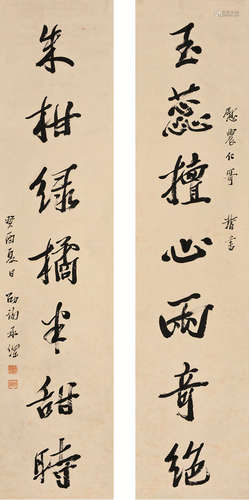 慰農仁哥
玉蕊檀心兩奇絕
朱柑绿橘半甜時
癸酉夏日